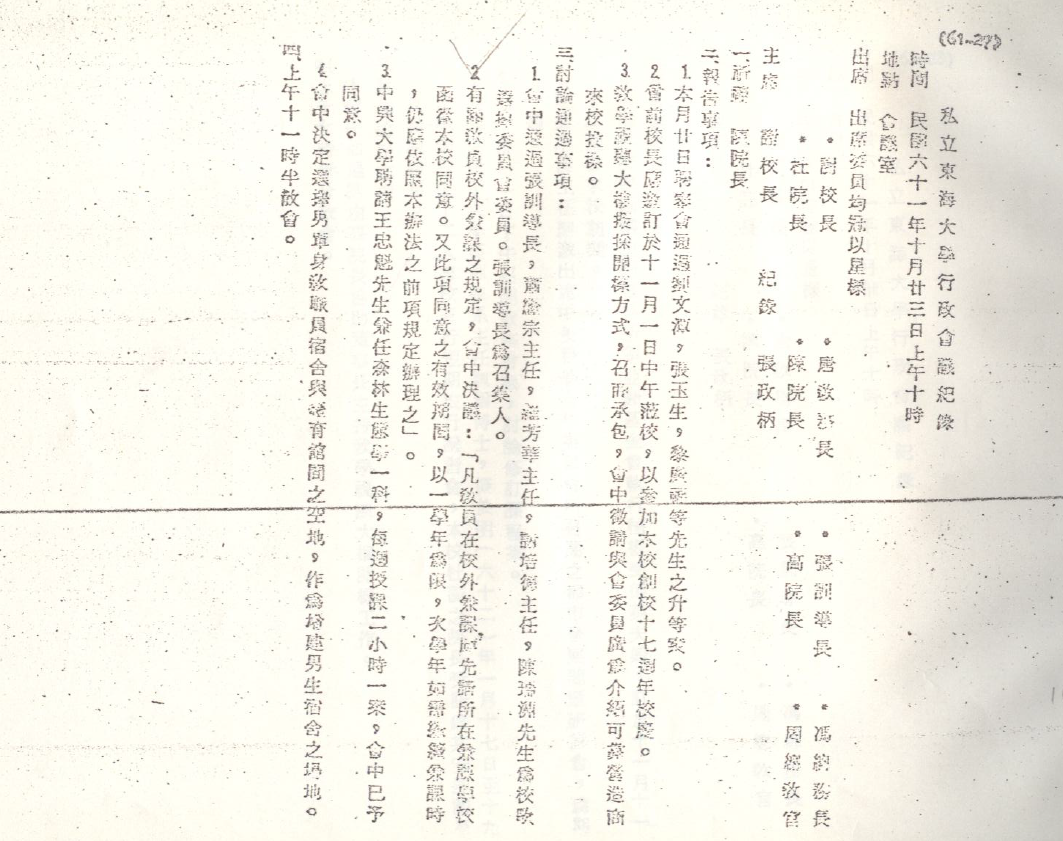 (61-27)
私立東海大學行政會議紀錄
時間 民國六十一年十月廿三日上午十時
地點 會議室
出席 出席委員均冠以星標
*謝校長 *唐敎務長 *張訓導長 *馮總務長
*杜院長 *陳院長 *高院長 *周總敎官
主席 謝校長 紀錄 張政柄
一、祈禱 陳院長
二、報告事項：
1.本月廿日聘審會通過劉文源，張玉生，黎等先生之升等案。
2.會前校長席邀訂於十一月一日中午蒞校，以參加本校創校十七週年校慶。
3.敎學疏聽大樓擬採開標方式，召商承包，會中徵請與會委員廣爲介紹可靠營造商
來校投標。
三、討論通過事項：
1.會中通過張訓導長，蕭宗主任，芳華主任，謝培德主任，陳淵先生爲校歌
選撰委員會委員。張訓導長爲召集人。
2.有關敎員校外兼課之規定，會中決議：「凡敎員在校外兼課應先請所在兼課學校
函徵本校同意。又此項同意之有效期間，以一學年爲限，次學年如需繼續兼課時
，仍應依照本辦法之前項規定辦理之」。
3.中興大學聘請王忠魁先生兼任森林生態學一科，每週授課二小時一案，會中已予
同意。
4.會中決定選擇男單身敎職員宿舍與體育館間之空地，作爲增建男生宿舍之場地。
四、上午十一時半散會。